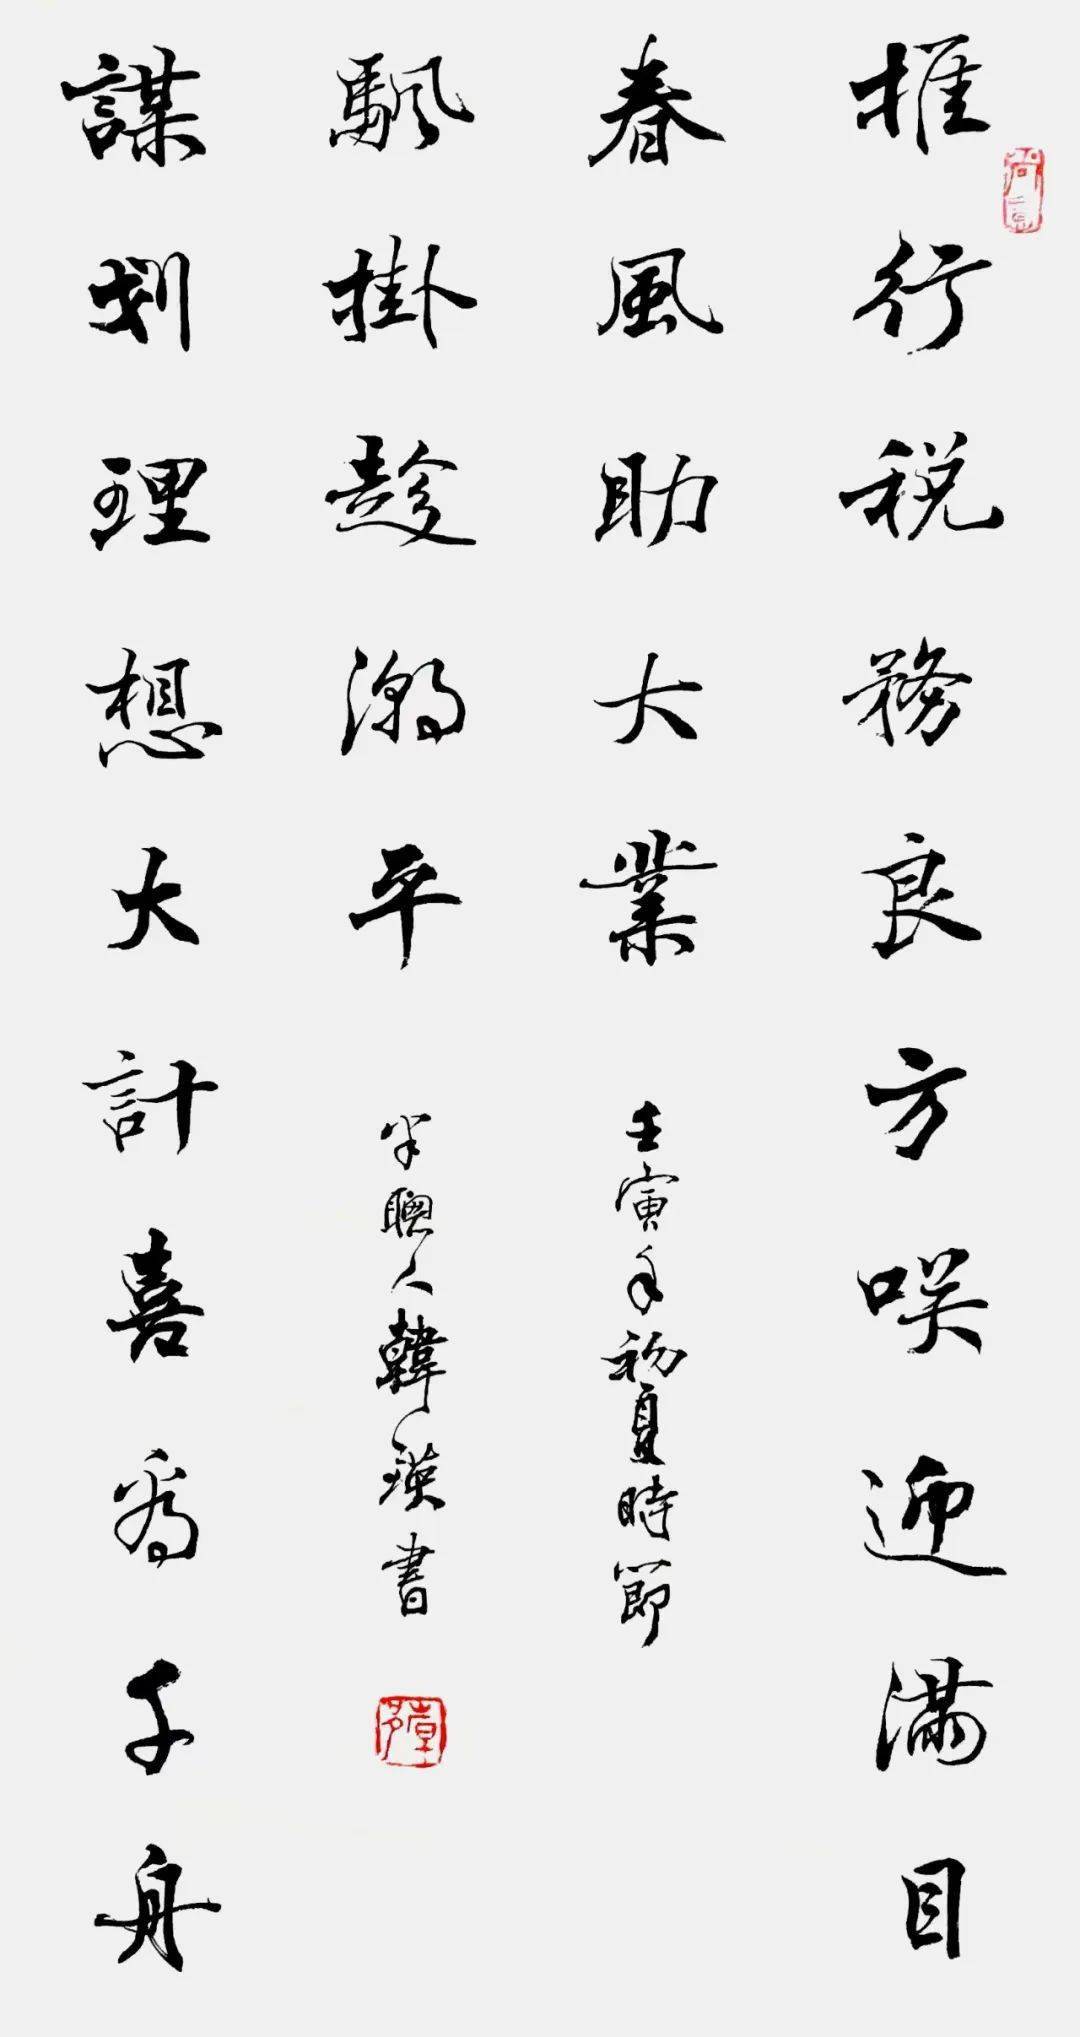 推行税務良方咲迎满目
春風助大業
謀划理想大計喜為千舟
颿掛趁潮平
壬寅年初夏時節
半聰人韓瑛書